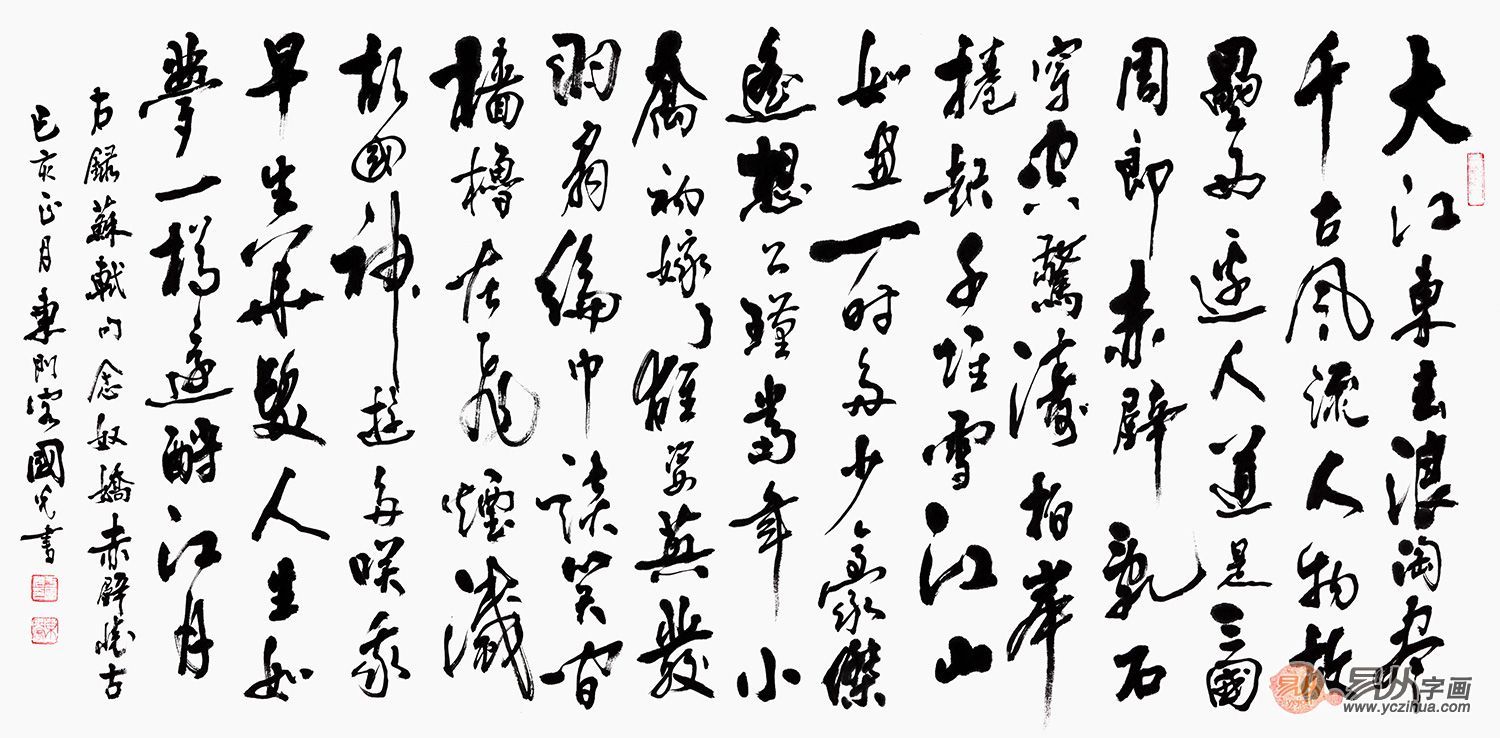 大江東去浪淘盡
千古風流人物故
壘西邊人道是三國
周郎赤壁亂石
穿空驚濤拍岸
捲起千堆雪江山
如畫一时多少豪傑
遙想公瑾當年小
喬初嫁了雄姿英發
羽扇綸巾談笑间
檣櫓灰飛煙滅
故國神遊多咲我
早生華髮人生如
夢一樽還酹江月
右錄蘇軾词念奴嬌赤壁懷古
己亥正月東門客國光書
易从字画
www.yczihua.com